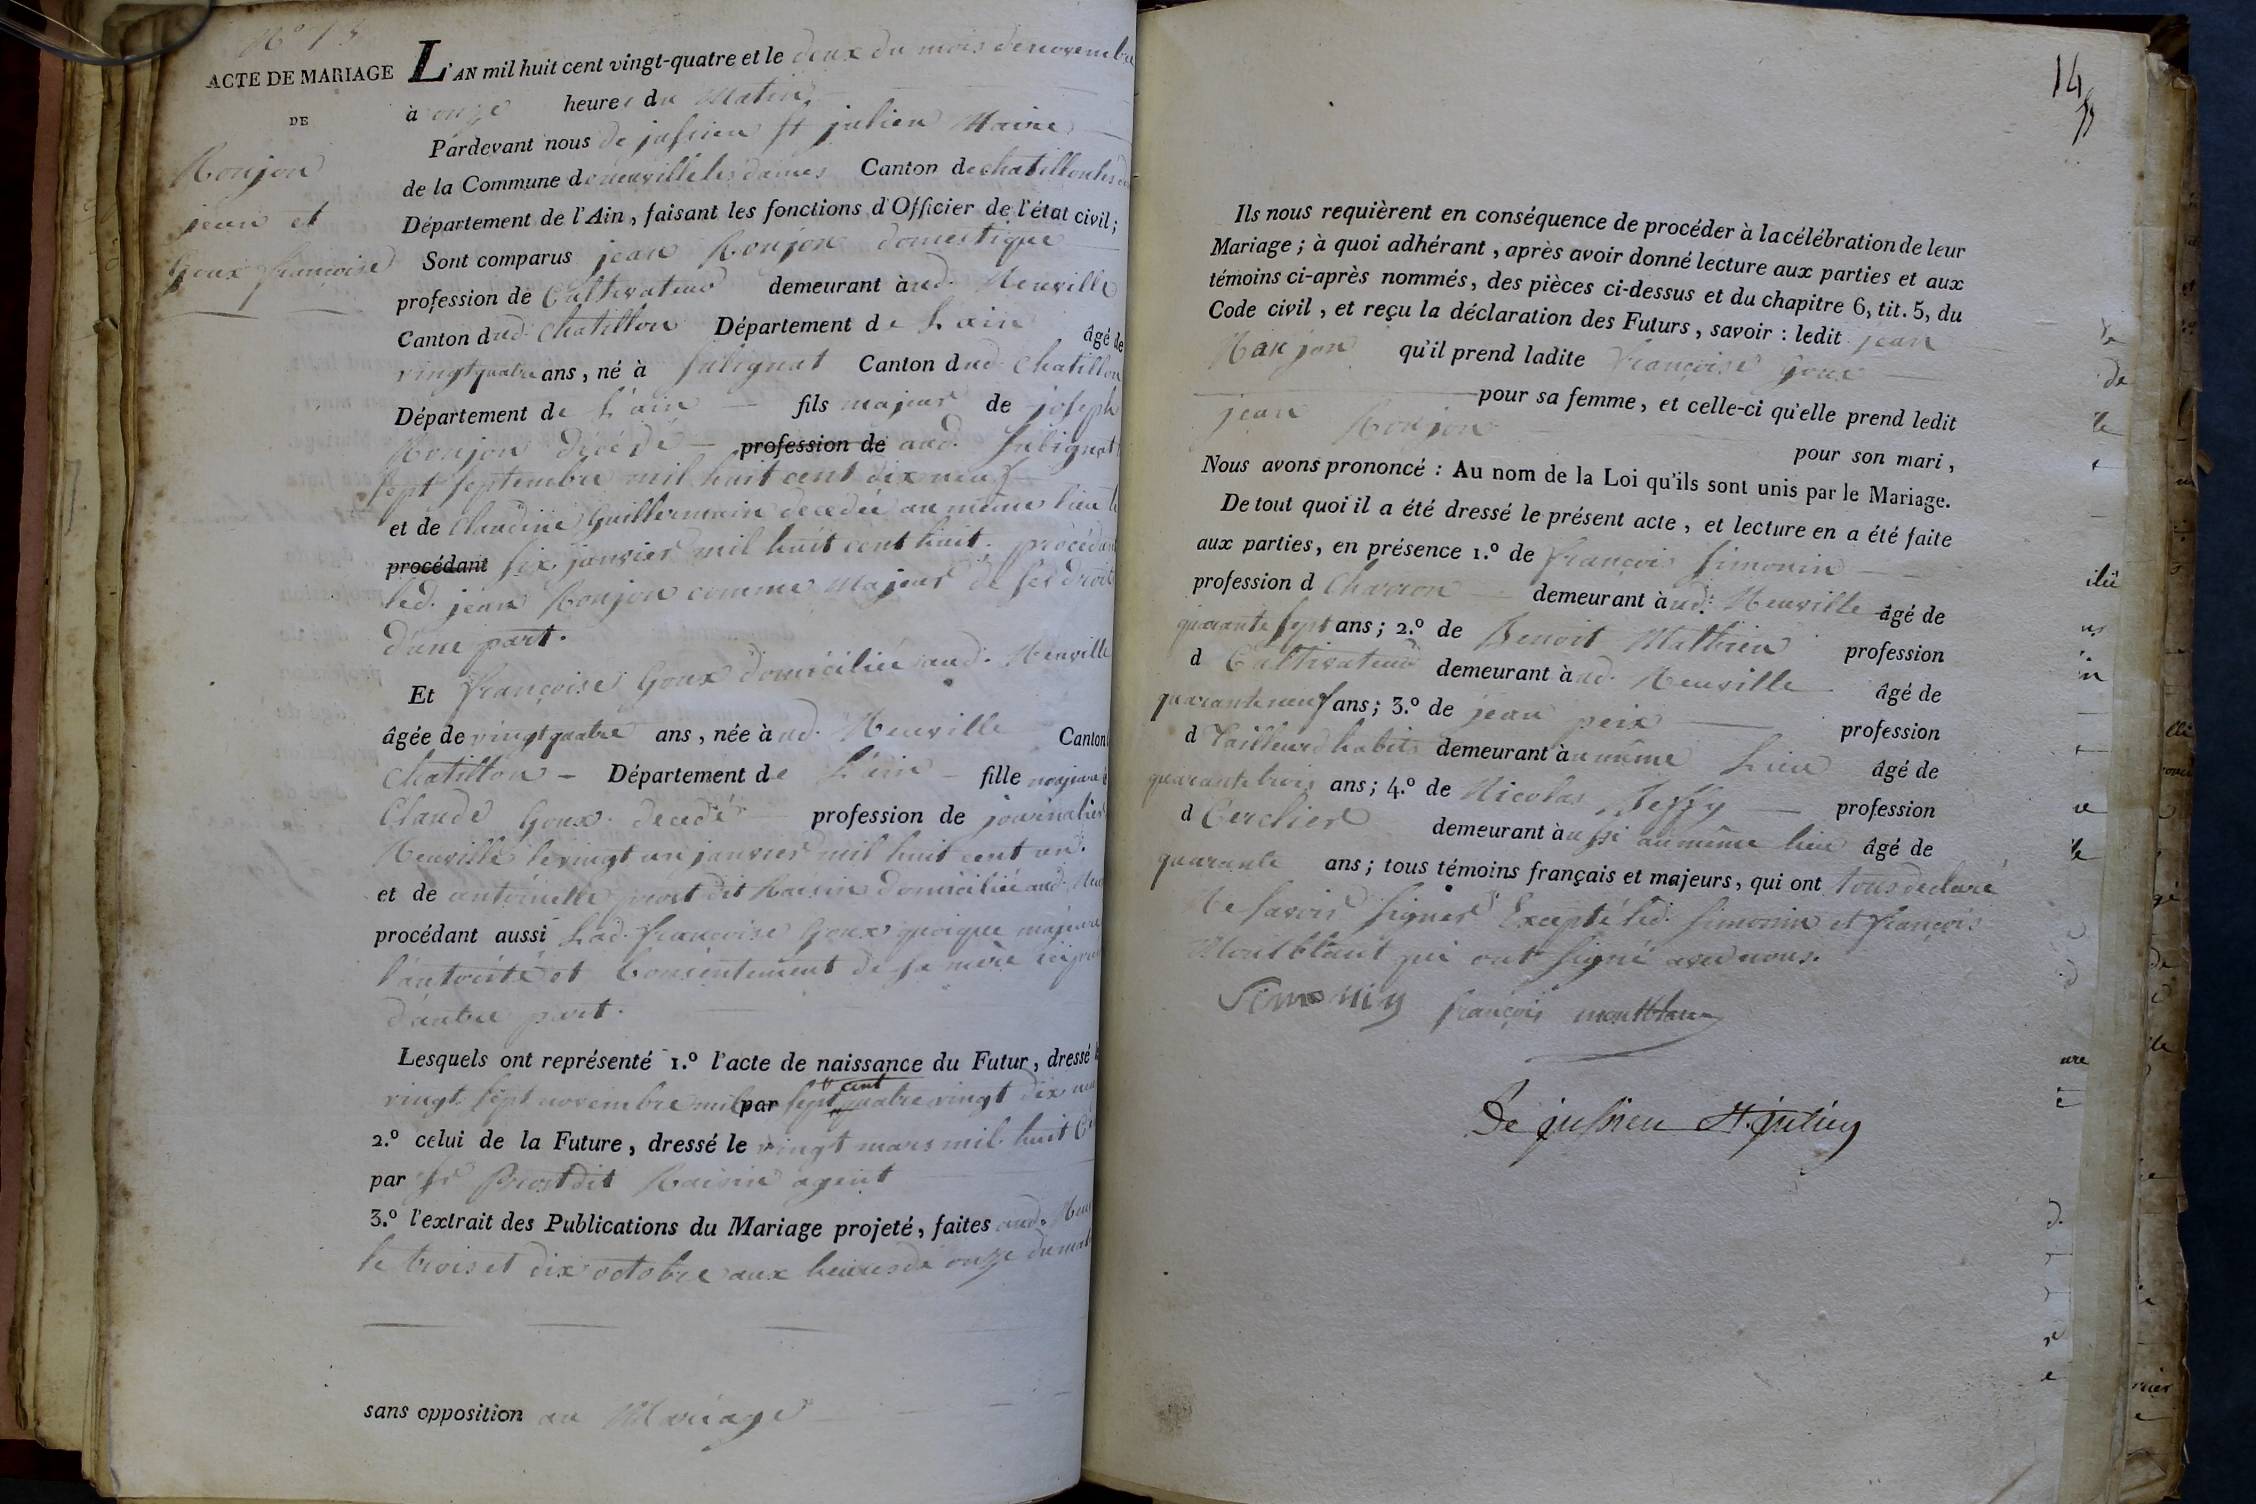 N° 13
ACTE DE MARIAGE
DE
Monjon
jean et
Goux françoise
L'AN mil huit cent vingt-quatre et le deux du mois de novembre
à onze heures du Matin.
Pardevant nous de jussieu st julien Maire
de la Commune de neuville les dames Canton de chatillon les
Département de l'Ain, faisant les fonctions d'Officier de l'état civil;
Sont comparus jean Monjon domestique
profession de Cultivateur demeurant à aud. Neuville
Canton dud. Chatillon Département de L'ain âgé de
vingt quatre ans, né à Sulignat Canton dud. Chatillon
Département de L'ain fils majeur de joseph
Monjon décédé profession de aud. Sulignat
sept septembre mil huit cent dix neuf
et de Claudine Guillermain decedée au même lieu le
procédant six janvier mil huit cent huit. procédant
led. jean Monjon comme Majeur de ses droits
d'une part.
Et françoise Goux domiciliée aud. Neuville
âgée de vingt quatre ans, née à aud. Neuville Canton
Chatillon Département de L'ain fille majeure
Claude Goux decedé profession de journalier
Neuville le vingt un janvier mil huit cent un.
et de antoinette prost dit Raisin domiciliée aud.
procédant aussi Lad. françoise Goux quoique majeure
l'autorité et Consentement de sa mère
d'autre part.
Lesquels ont représenté 1.° l'acte de naissance du Futur, dressé le
vingt sept novembre mil par sept cent quatre vingt dix
2.° celui de la Future, dressé le vingt mars mil huit
par Sr Prost dit Raisin agent
3.° l'extrait des Publications du Mariage projeté, faites aud.
le trois et dix octobre aux heures de onze du
sans opposition au Mariage
14
Ils nous requièrent en conséquence de procéder à la célébration de leur
Mariage; à quoi adhérant, après avoir donné lecture aux parties et aux
témoins ci-après nommés, des pièces ci-dessus et du chapitre 6, tit. 5, du
Code civil, et reçu la déclaration des Futurs, savoir: ledit jean
Monjon qu'il prend ladite françoise Goux
pour sa femme, et celle-ci qu'elle prend ledit
jean Monjon pour son mari,
Nous avons prononcé: Au nom de la Loi qu'ils sont unis par le Mariage.
De tout quoi il a été dressé le présent acte, et lecture en a été faite
aux parties, en présence 1.° de françois Simonin
profession d Charron demeurant à aud. Neuville âgé de
quarante sept ans; 2.° de Benoit Mathieu profession
d Cultivateur demeurant à aud. Neuville âgé de
quarante neuf ans; 3.° de jean peix profession
d Tailleur d'habits demeurant à au même Lieu âgé de
quarante trois ans; 4.° de Nicolas profession
d Cerclier demeurant à aussi au même lieu âgé de
quarante ans; tous témoins français et majeurs, qui ont tous declaré
Ne savoir signer Excepté led. Simonin et françois
Montblant qui ont signé avec nous.
Simonin françois montblan
De jussieu st. julien